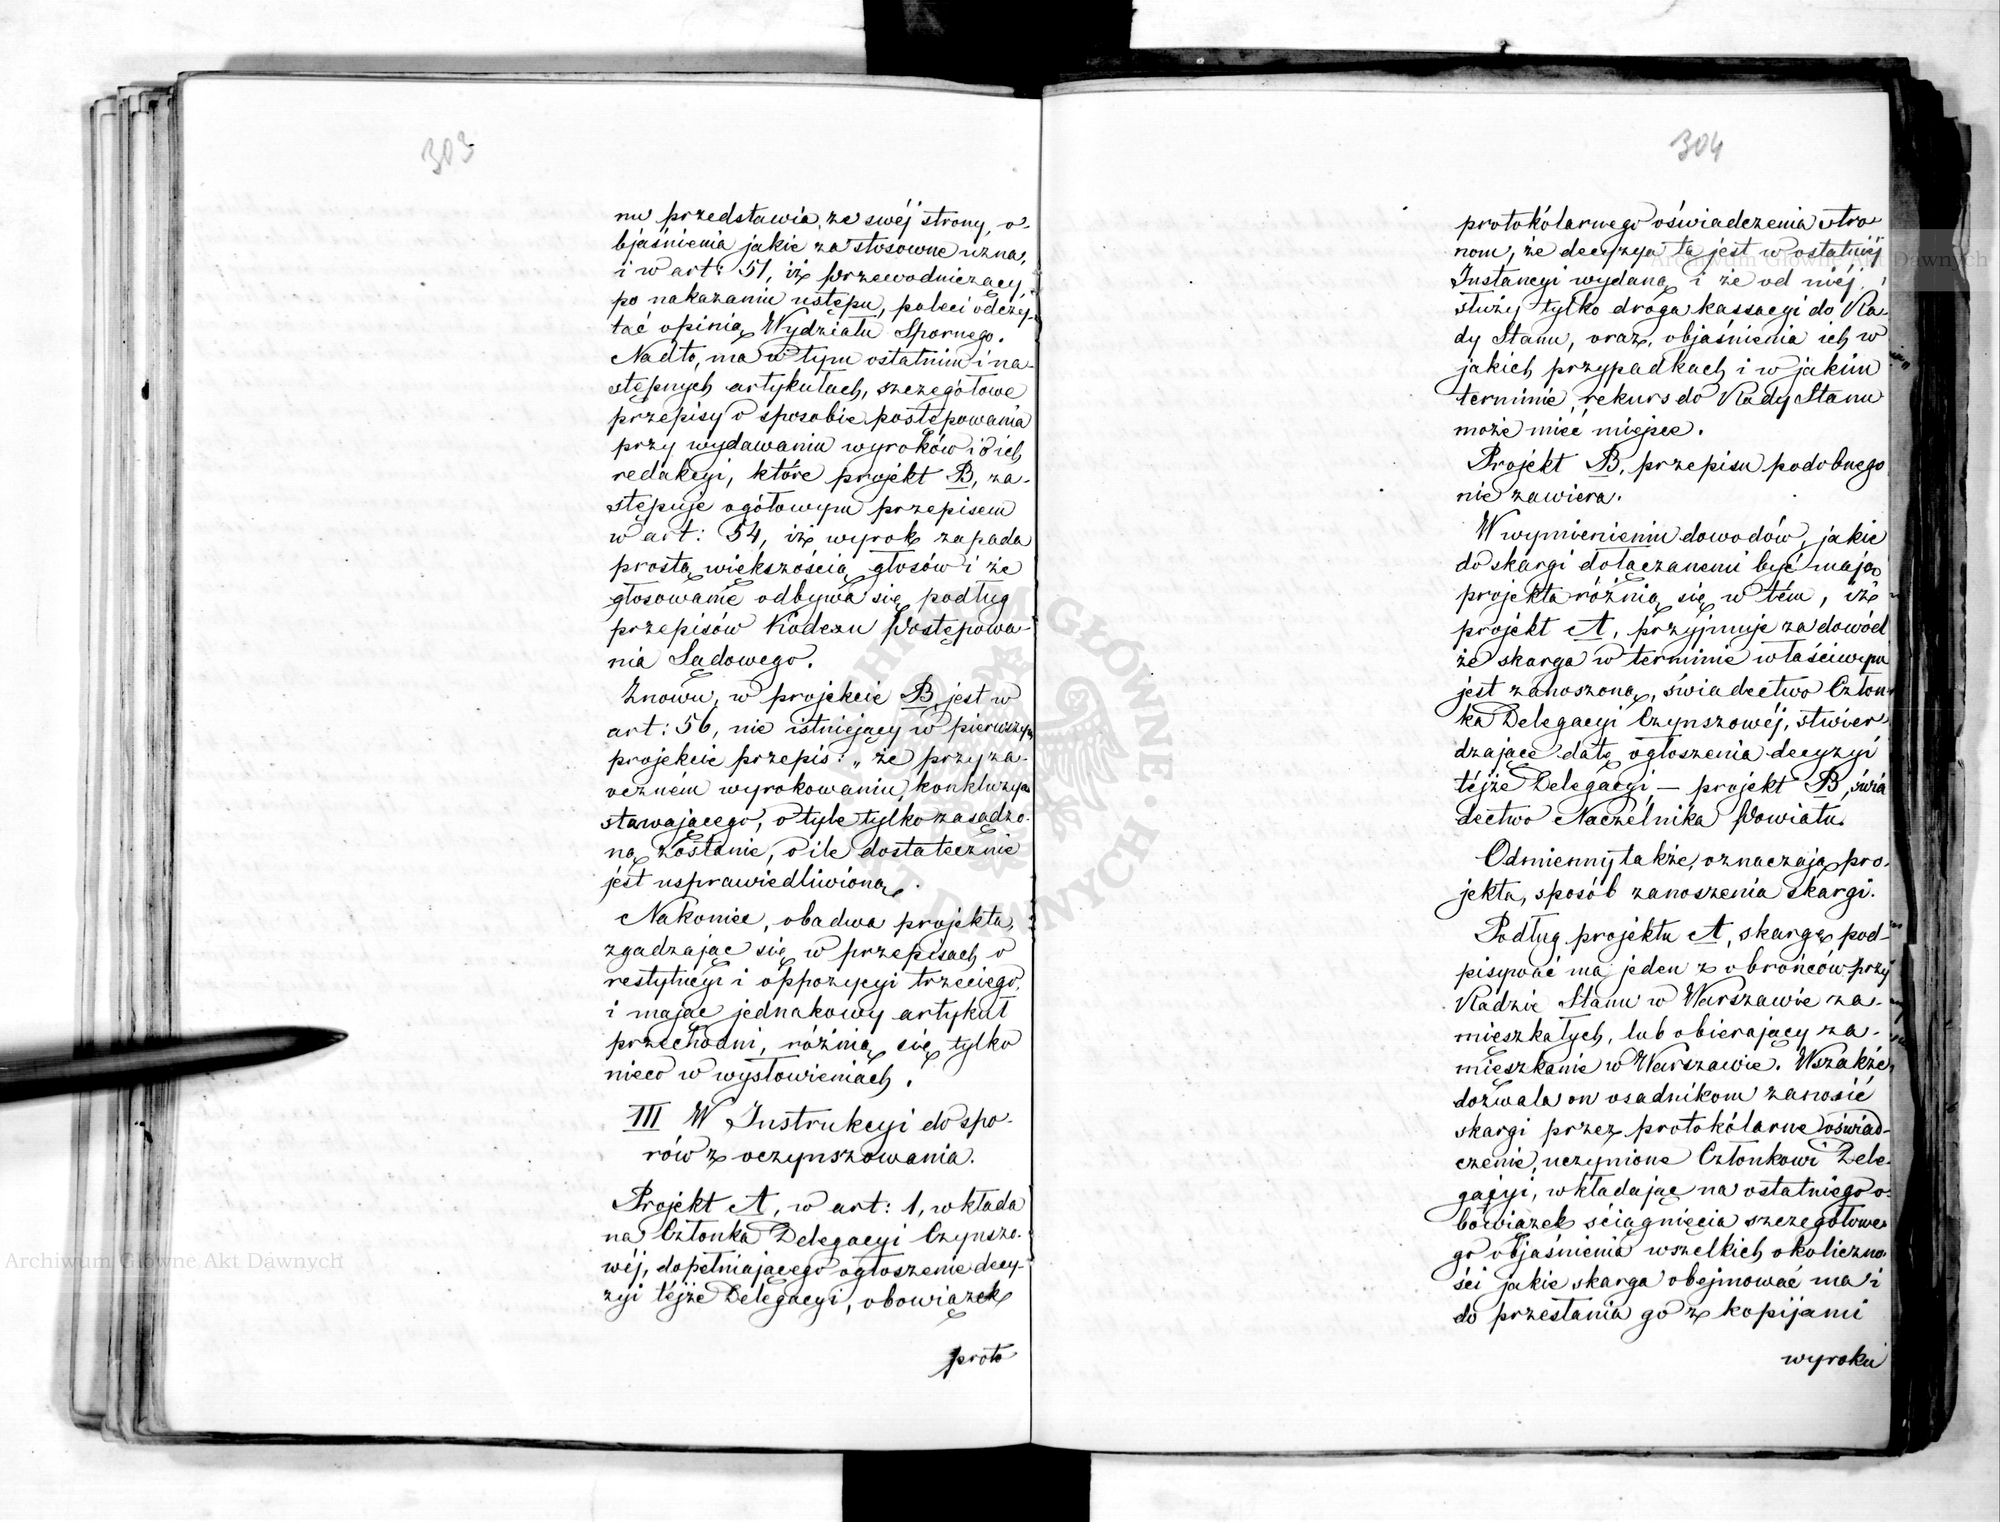 303
nu przedstawia, ze swéj strony, o-
bjaśnienia jakie za stosowne uzna,
i w art: 51, iż Przewodniczący,
po nakazaniu ustępu, poleci odczy-
tać opinią Wydziału Spornego.
Nadto, ma w tym ostatnim i na-
stępnych artykułach, szczegółowe
przepisy o sposobie postępowania
przy wydawaniu wyroków i o ich
redakcyi, które projekt B, za-
stępuje ogółowym przepisem
w art: 54, iż wyrok zapada
prostą większością głosów i że
głosowanie odbywa się podług
przepisów Kodexu Postępowa-
nia Sądowego.
Znowu, w projekcie B, jest w
art: 56, nie istniejący w pierwszym
projekcie przepis: „że przy za-
oczném wyrokowaniu, konkluzya
stawającego, o tyle tylko zasądzo-
ną zostanie, o ile dostatecznie
jest usprawiedliwioną.
Nakoniec, obadwa projekta,
zgadzając się w przepisach o
restytucyi i oppozycyi trzeciego,
i mając jednakowy artykuł
przechodni, różnią się tylko
nieco w wysłowieniach.
III W Instrukcyi do spo-
rów z oczynszowania.
Projekt A, w art: 1, wkłada
na Członka Delegacyi Czynszo-
wéj, dopełniającego ogłoszenie decy-
zyi téjże Delegacyi, obowiązek
proto
304
protokólarnego oświadczenia stro-
nom, że decyzya ta jest w ostatniéj
Instancyi wydaną i że od niéj
służy tylko droga kassacyi do Ra-
dy Stanu, oraz, objaśnienia ich w
jakich przypadkach i w jakim
terminie, rekurs do Rady Stanu
może mieć miejsce.
Projekt B, przepisu podobnego
nie zawiera.
W wymienieniu dowodów, jakie
do skargi dołączanemi być mają
projekta różnią się w tém, iż
projekt A, przyjmuje za dowód
że skarga w terminie właściwym
jest zanoszoną, świadectwo Człon-
ka Delegacyi Czynszowéj, stwier-
dzające datę ogłoszenia decyzyi
téjże Delegacyi — projekt B, świa
dectwo Naczelnika Powiatu.
Odmienny także, oznaczają pro-
jekta, sposób zanoszenia skargi.
Podług projektu A, skargę pod-
pisywać ma jeden z obrońców przy
Radzie Stanu w Warszawie za-
mieszkałych, lub obierający za-
mieszkanie w Warszawie. Wszakże,
dozwala on osadnikom zanosić
skargi przez protokólarne oświad-
czenie, uczynione Członkowi Dele-
gacyi, wkładając na ostatniego o-
bowiązek ściągnięcia szczegółowe-
go objaśnienia wszelkich okoliczno-
ści jakie skarga obejmować ma i
do przesłania go z kopijami
wyroku
Archiwum Główne Akt Dawnych
Archiwum Główne Akt Dawnych
ARCHIWUM GŁÓWNE AKT DAWNYCH